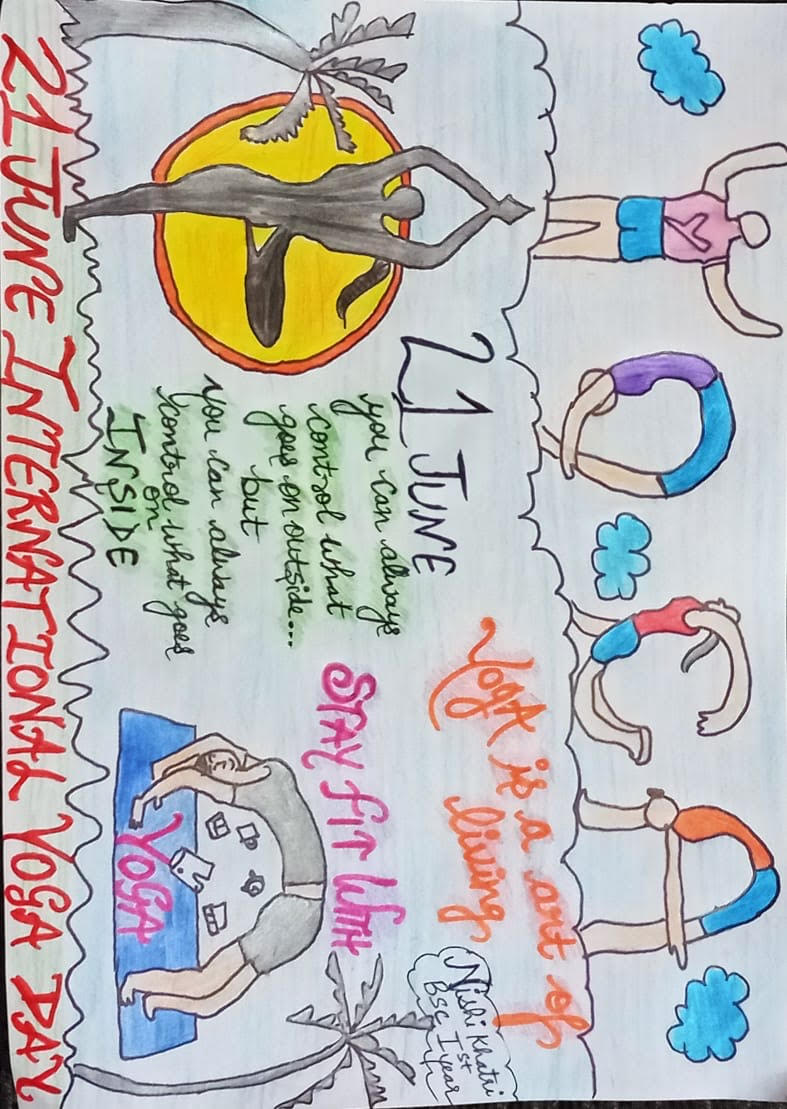 21 JUNE
you can always
control what
goes on outside...
but
you can always
control what goes
on
INSIDE
YogA is a art of
living
Nishi Khatri
BSc Ist
Year
STAY FIT WITH
YOGA
21 JUNE INTERNATIONAL YOGA DAY